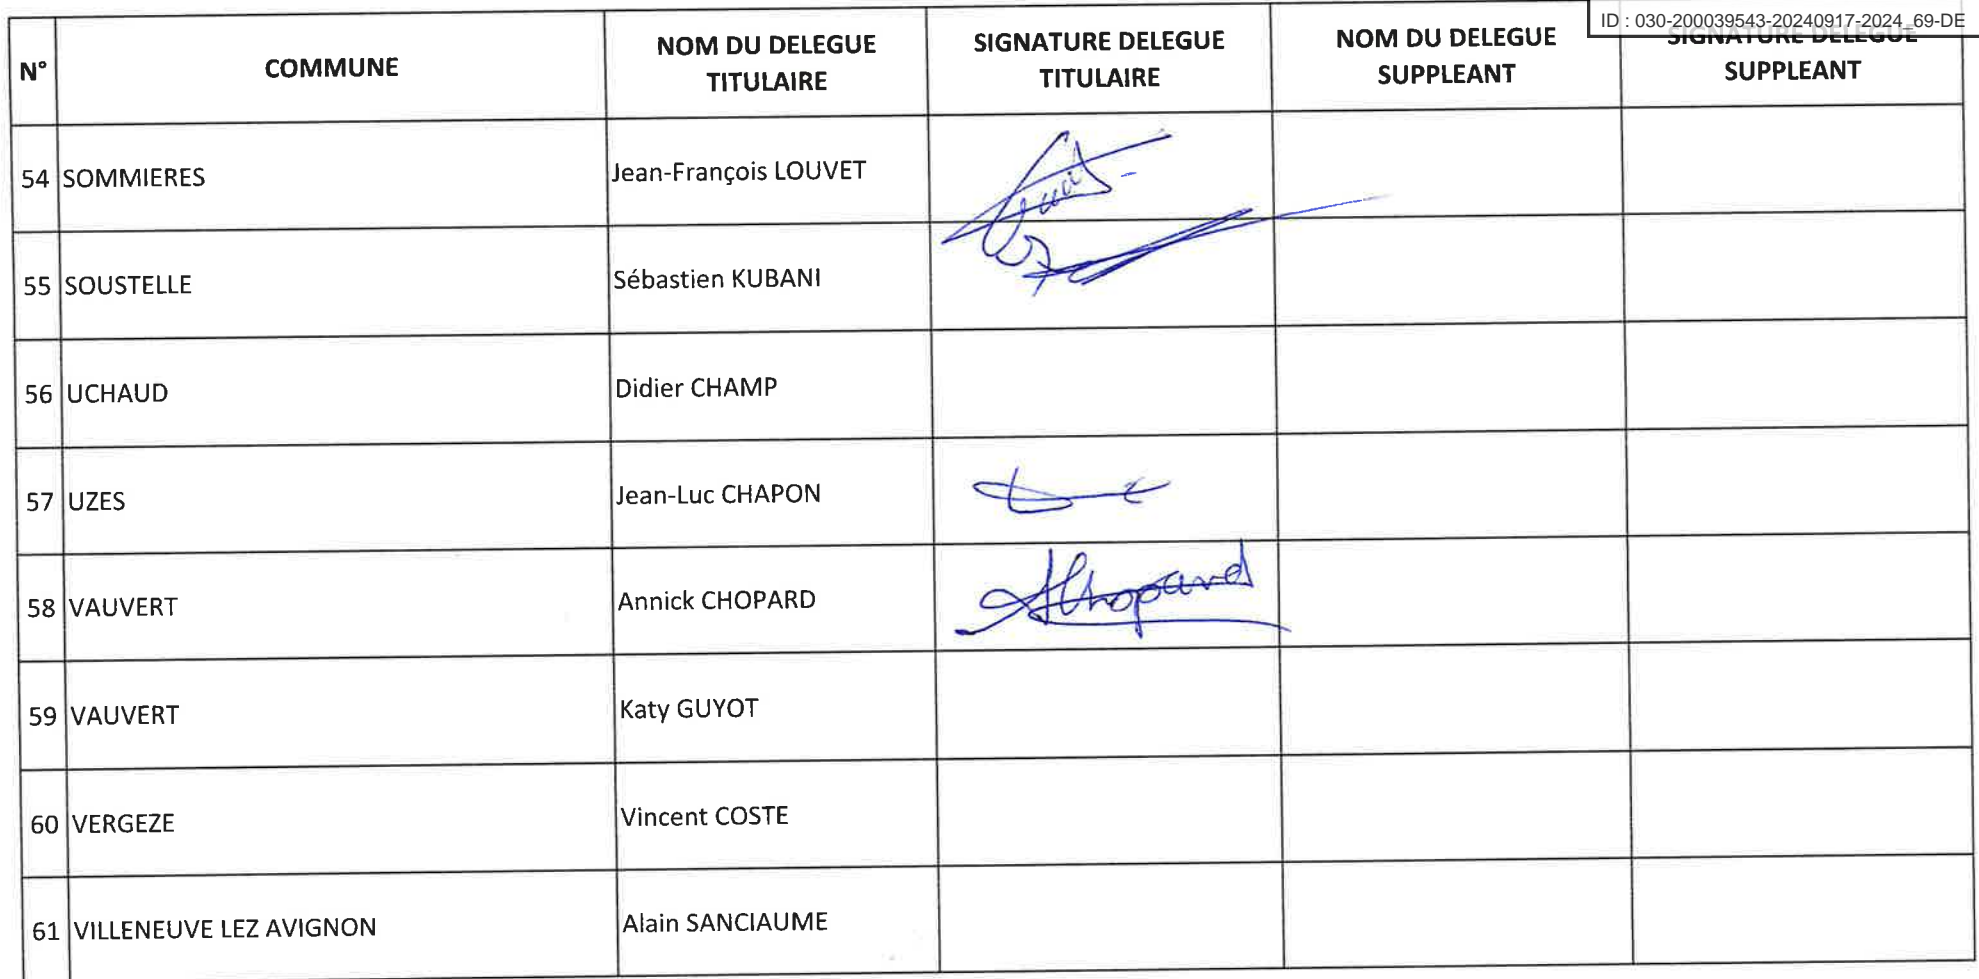 ID : 030-200039543-20240917-2024_69-DE
N° COMMUNE NOM DU DELEGUE TITULAIRE SIGNATURE DELEGUE TITULAIRE NOM DU DELEGUE SUPPLEANT SIGNATURE DELEGUE SUPPLEANT
54 SOMMIERES Jean-François LOUVET
55 SOUSTELLE Sébastien KUBANI
56 UCHAUD Didier CHAMP
57 UZES Jean-Luc CHAPON
58 VAUVERT Annick CHOPARD AChopard
59 VAUVERT Katy GUYOT
60 VERGEZE Vincent COSTE
61 VILLENEUVE LEZ AVIGNON Alain SANCIAUME